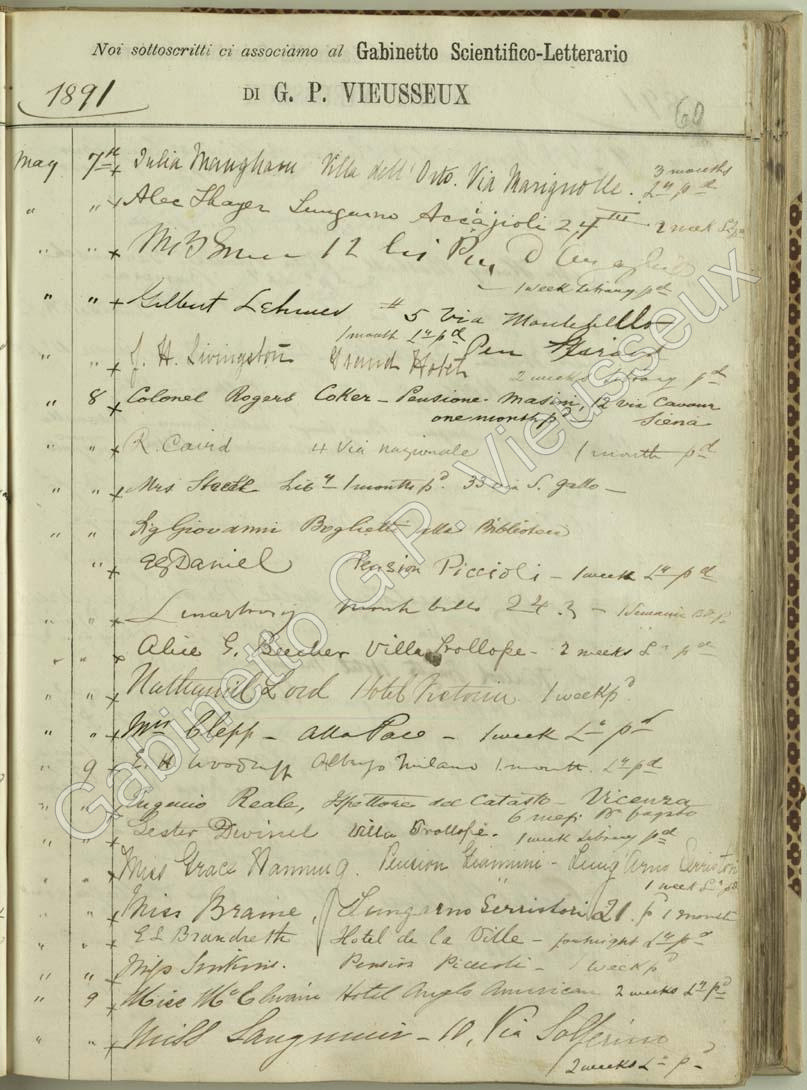 Noi sottoscritti ci associamo al Gabinetto Scientifico-Letterario
DI G. P. VIEUSSEUX
1891
60
May 7th Julia Maugham Villa dell'Orto. Via Marignolle. 3 months Ly pd
" " Alec Thayer Lungarno Acciajoli 24 1 week
" " 12 bis
1 week library pd
" " Gilbert 5 Via Montebello
1 month Ly pd Pen
" " J. H. Livingston Grand Hotel
2 weeks library pd
" 8 Colonel Rogers Coker - Pensione Masini, 12 via Cavour
one month pd Siena
" " R. Caird 4 Via nazionale 1 month pd
" " Mrs Liby 1 month pd. 33 via S. gallo -
" " Sig Giovanni alla Biblioteca
" Daniel Pension Piccioli - 1 week Ly pd
24
" " Alice G. Beecher Villa Trollope - 2 weeks L pd
" " Nathaniel Lord Hotel Victoria 1 week pd
" " Clepp - alla Pace - 1 week Ly pd
" 9 E. H. Woodruff Albergo Milano 1 month. Ly pd
" " Eugenio Reale, Ispettore del Catasto - Vicenza
6 mesi
" " Lester Villa Trollope. 1 week library pd
" " Miss Grace Hanning. Pension - Lung'Arno
1 week L pd
" " Miss Braine, Lungarno Serristori 21. p 1 month
" " E L Brandreth Hotel de la Ville - fortnight Ly pd
" " Miss Pension Piccioli - 1 week pd
" 9 Miss McElwain Hotel Anglo American 2 weeks Ly pd
" " Miss - 10, Via Solferino
2 weeks L pd
Gabinetto G.P. Vieusseux